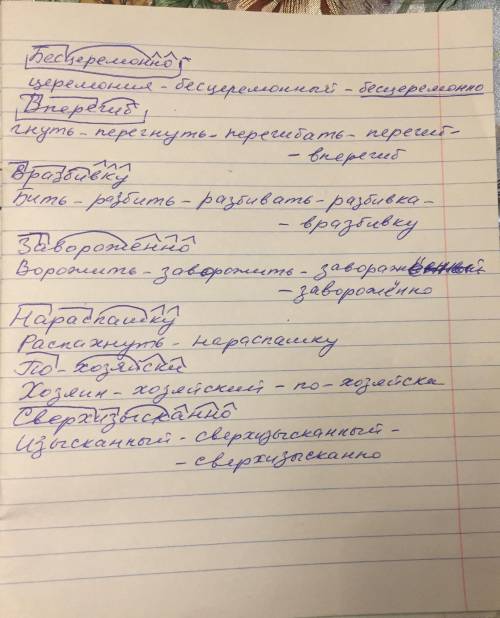 Бесцеремонно
церемония - бесцеремонный - бесцеремонно
Вперегиб
гнуть - перегнуть - перегибать - перегиб -
- вперегиб
Вразбивку
Бить - разбить - разбивать - разбивка -
- вразбивку
Заворожённо
Ворожить - заворожить -
- заворожённо
Нараспашку
Распахнуть - нараспашку
По-хозяйски
Хозяин - хозяйский - по-хозяйски
Сверхизысканно
Изысканный - сверхизысканный -
- сверхизысканно